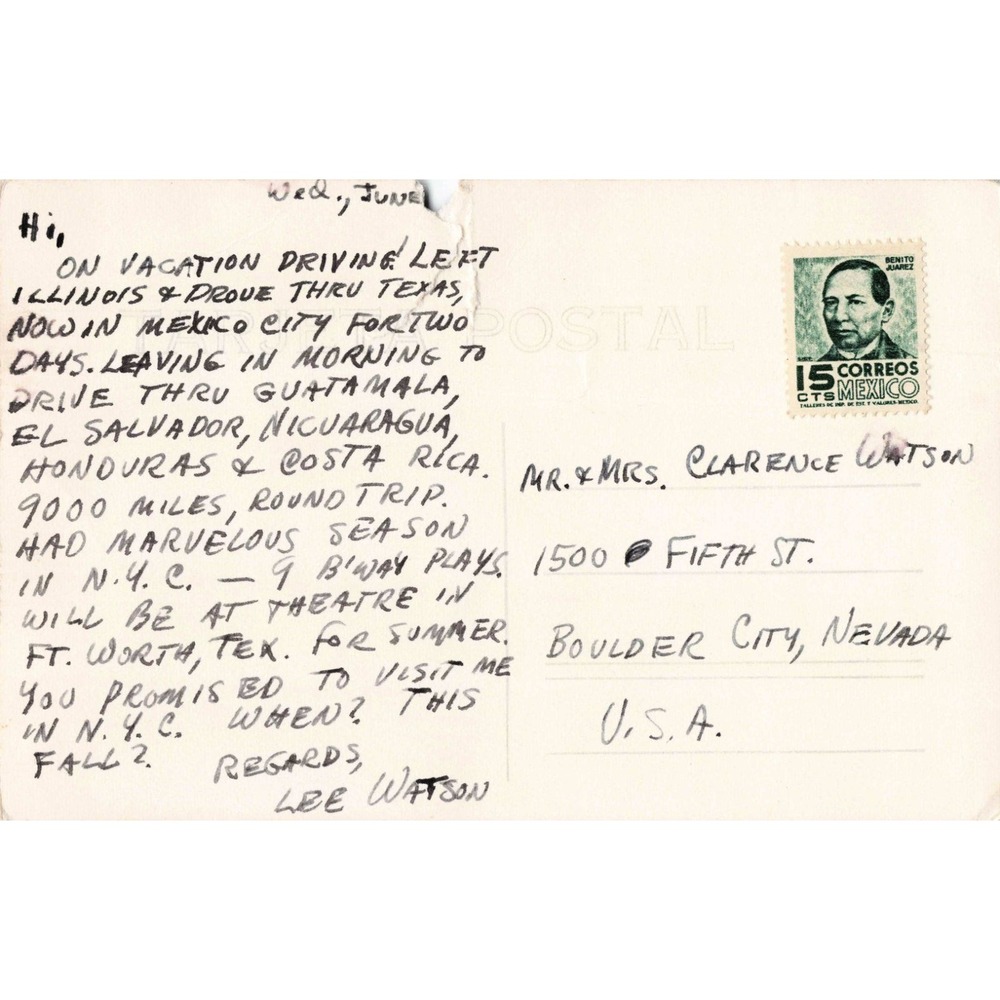 Wed., June
Hi,
ON VACATION DRIVING! LEFT
ILLINOIS & DROVE THRU TEXAS,
NOW IN MEXICO CITY FOR TWO
DAYS. LEAVING IN MORNING TO
DRIVE THRU GUATAMALA,
EL SALVADOR, NICUARAGUA,
HONDURAS & COSTA RICA.
9000 MILES, ROUND TRIP.
HAD MARVELOUS SEASON
IN N.Y.C. — 9 B'WAY PLAYS.
WILL BE AT THEATRE IN
FT. WORTH, TEX. FOR SUMMER.
YOU PROMISED TO VISIT ME
IN N.Y.C. WHEN? THIS
FALL?
REGARDS,
LEE WATSON
TARJETA POSTAL
BENITO
JUAREZ
15 CORREOS
CTS MEXICO
TALLERES DE IMP. DE EST. Y VALORES-MEXICO.
MR. & MRS. CLARENCE WATSON
1500 FIFTH ST.
BOULDER CITY, NEVADA
U.S.A.